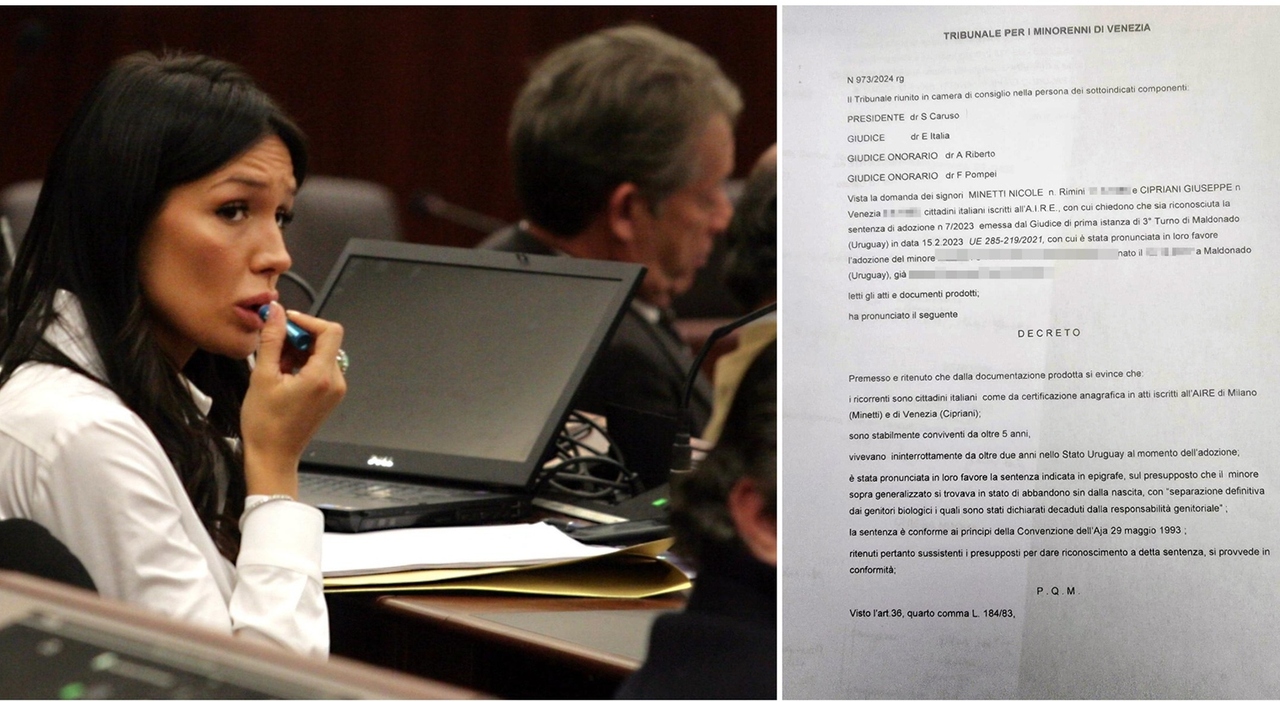 DELL
TRIBUNALE PER I MINORENNI DI VENEZIA
N 973/2024 rg
Il Tribunale riunito in camera di consiglio nella persona dei sottoindicati componenti:
PRESIDENTE dr S Caruso
GIUDICE dr E Italia
GIUDICE ONORARIO dr A Riberto
GIUDICE ONORARIO dr F Pompei
Vista la domanda dei signori MINETTI NICOLE n. Rimini e CIPRIANI GIUSEPPE n
Venezia cittadini italiani iscritti all'A.I.R.E., con cui chiedono che sia riconosciuta la
sentenza di adozione n 7/2023 emessa dal Giudice di prima istanza di 3° Turno di Maldonado
(Uruguay) in data 15.2.2023 UE 285-219/2021, con cui è stata pronunciata in loro favore
l'adozione del minore nato il a Maldonado
(Uruguay), già
letti gli atti e documenti prodotti;
ha pronunciato il seguente
DECRETO
Premesso e ritenuto che dalla documentazione prodotta si evince che:
i ricorrenti sono cittadini italiani come da certificazione anagrafica in atti iscritti all'AIRE di Milano
(Minetti) e di Venezia (Cipriani);
sono stabilmente conviventi da oltre 5 anni,
vivevano ininterrottamente da oltre due anni nello Stato Uruguay al momento dell'adozione;
è stata pronunciata in loro favore la sentenza indicata in epigrafe, sul presupposto che il minore
sopra generalizzato si trovava in stato di abbandono sin dalla nascita, con "separazione definitiva
dai genitori biologici i quali sono stati dichiarati decaduti dalla responsabilità genitoriale" ;
la sentenza è conforme ai principi della Convenzione dell'Aja 29 maggio 1993 ;
ritenuti pertanto sussistenti i presupposti per dare riconoscimento a detta sentenza, si provvede in
conformità;
P.Q.M.
Visto l'art.36, quarto comma L. 184/83,